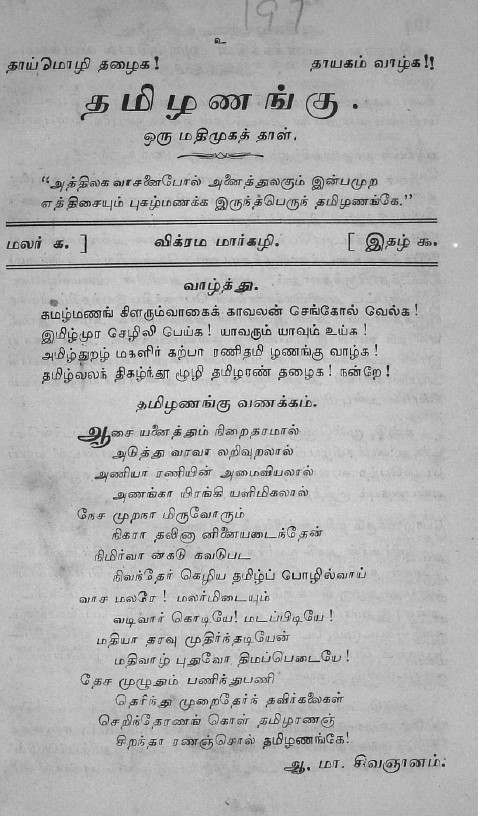 197
உ
தாய்மொழி தழைக! தாயகம் வாழ்க!!
தமிழணங்கு.
ஒரு மதிமுகத் தாள்.
“அத்திலக வாசனைபோல் அனைத்துலகும் இன்பமுற
எத்திசையும் புகழ்மணக்க இருந்த்பெருந் தமிழணங்கே.”
மலர் க. ] விக்ரம மார்கழி. [ இதழ் ௯.
வாழ்த்து.
கமழ்மணங் கிளரும்வாகைக் காவலன் செங்கோல் வெல்க!
இமிழ்முர செழிலி பெய்க! யாவரும் யாவும் உய்க!
அமிழ்துறழ் மகளிர் கற்பா ரணிதமி ழணங்கு வாழ்க!
தமிழ்வலந் திகழ்ந்தூ ழுழி தமிழரண் தழைக! நன்றே!
தமிழணங்கு வணக்கம்.
ஆசை யனைத்தும் நிறைதாமால்
அடுத்து வாவா லறிவுறலால்
அணியா ரணியின் அமைவியலால்
அணங்கா யிரங்கி யளிமிகலால்
நேச முறநா மிருவோரும்
நிகரா தலினா னினையடைந்தேன்
நிமிர்வா ன்கடு கவடுபட
நிவந்தேர் கெழிய தமிழ்ப் பொழில்வாய்
வாச மலரே! மலர்மிடையும்
வடிவார் கொடியே! மடப்பிடியே!
மதியா தரவு முதிர்ந்தடியேன்
மதிவாழ் புதுவோ திமப்பெடையே!
தேச முழுதும் பணிந்துபணி
தெரிந்து முறைதேர்ந் தவிர்கலைகள்
செறிந்தோணங் கொள் தமிழரணஞ்
சிறந்தா ரணஞ்சொல் தமிழணங்கே!
ஆ. மா. சிவஞானம்.